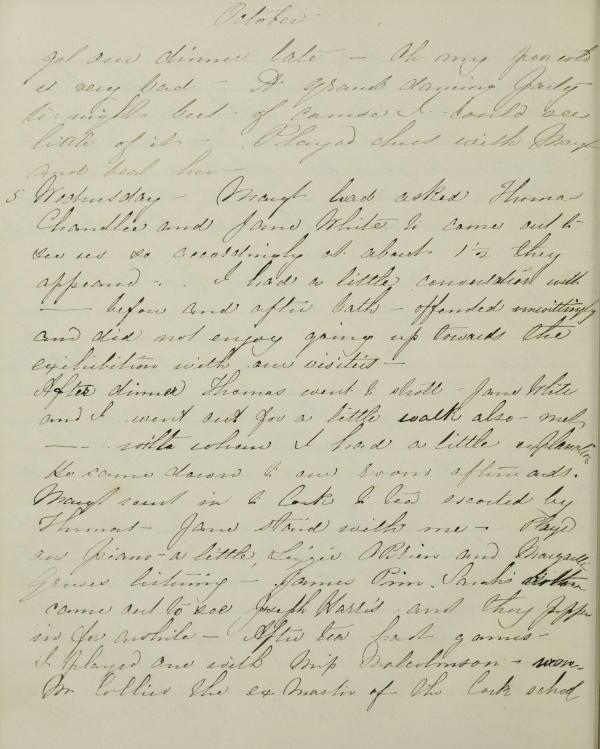 October
got our dinner late - Oh my poor cold
is very bad - A grand dancing party
to-night but of course I could see
little of it - Played chess with Margt
and beat her -
5 Wednesday - Margt had asked Thomas
Chandlee and Jane White to come out to
see us so accordingly at about 1 1/2 they
appeard - . I had a little conversation with
— before and after bath - offended unwittingly
and did not enjoy going up towards the
exihibition with our visitors -
After dinner Thomas went to stroll - Jane White
and I went out for a little walk also - met
— with whom I had a little explanation
He came down to our room afterwards.
Margt went in to Cork to tea escorted by
Thomas - Jane staid with me - Playd
on piano a little, Lizzie and
listening - James Pim. Sarah's
came out to see Joseph Harris and they
in for awhile - After tea had games -
I played one with Miss Malcolmson - won -
Mr Collier the ex Master of the Cork school